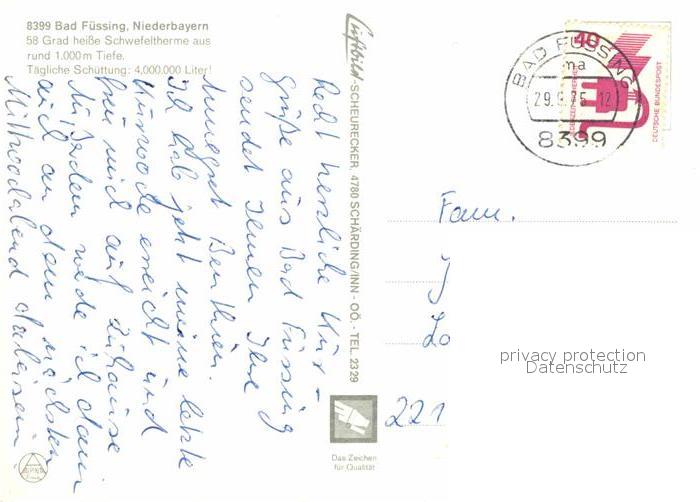 8399 Bad Füssing, Niederbayern
58 Grad heiße Schwefeltherme aus
rund 1.000 m Tiefe.
Tägliche Schüttung: 4,000.000 Liter!
Recht herzliche Kur-
grüße aus Bad Füssing
sendet Ihnen Ihre
Annegret Benthien.
Ich hab jetzt meine letzte
Kurwoche erreicht und
freu mich auf Zuhause
Außerdem werde ich dann
auch an dem nächsten
Mittwochabend dabeisein.
Luftbild-SCHEURECKER, 4780 SCHÄRDING/INN - OÖ. - TEL. 2329
Das Zeichen
für Qualität
40
DEUTSCHE BUNDESPOST
BAD FÜSSING
ma
29.9.75-12
8399
Fam.
J
Lo
privacy protection
Datenschutz
221